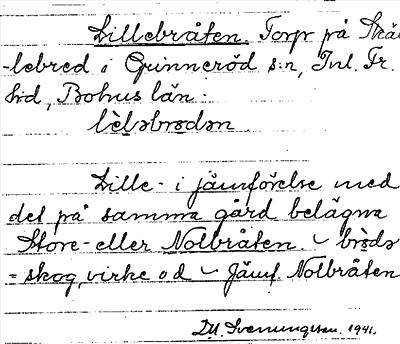 Lillebråten. Torp på Strå
-lebred i Grinneröd s:n, Inl. Fr.
hrd, Bohus län.
lìləbrødən
Lille- i jämförelse med
det på samma gård belägna
Store- eller Nolbråten. ~ brødə
= skog, virke o d ~ Jämf Nolbråten
DM. Svenungsson. 1941.